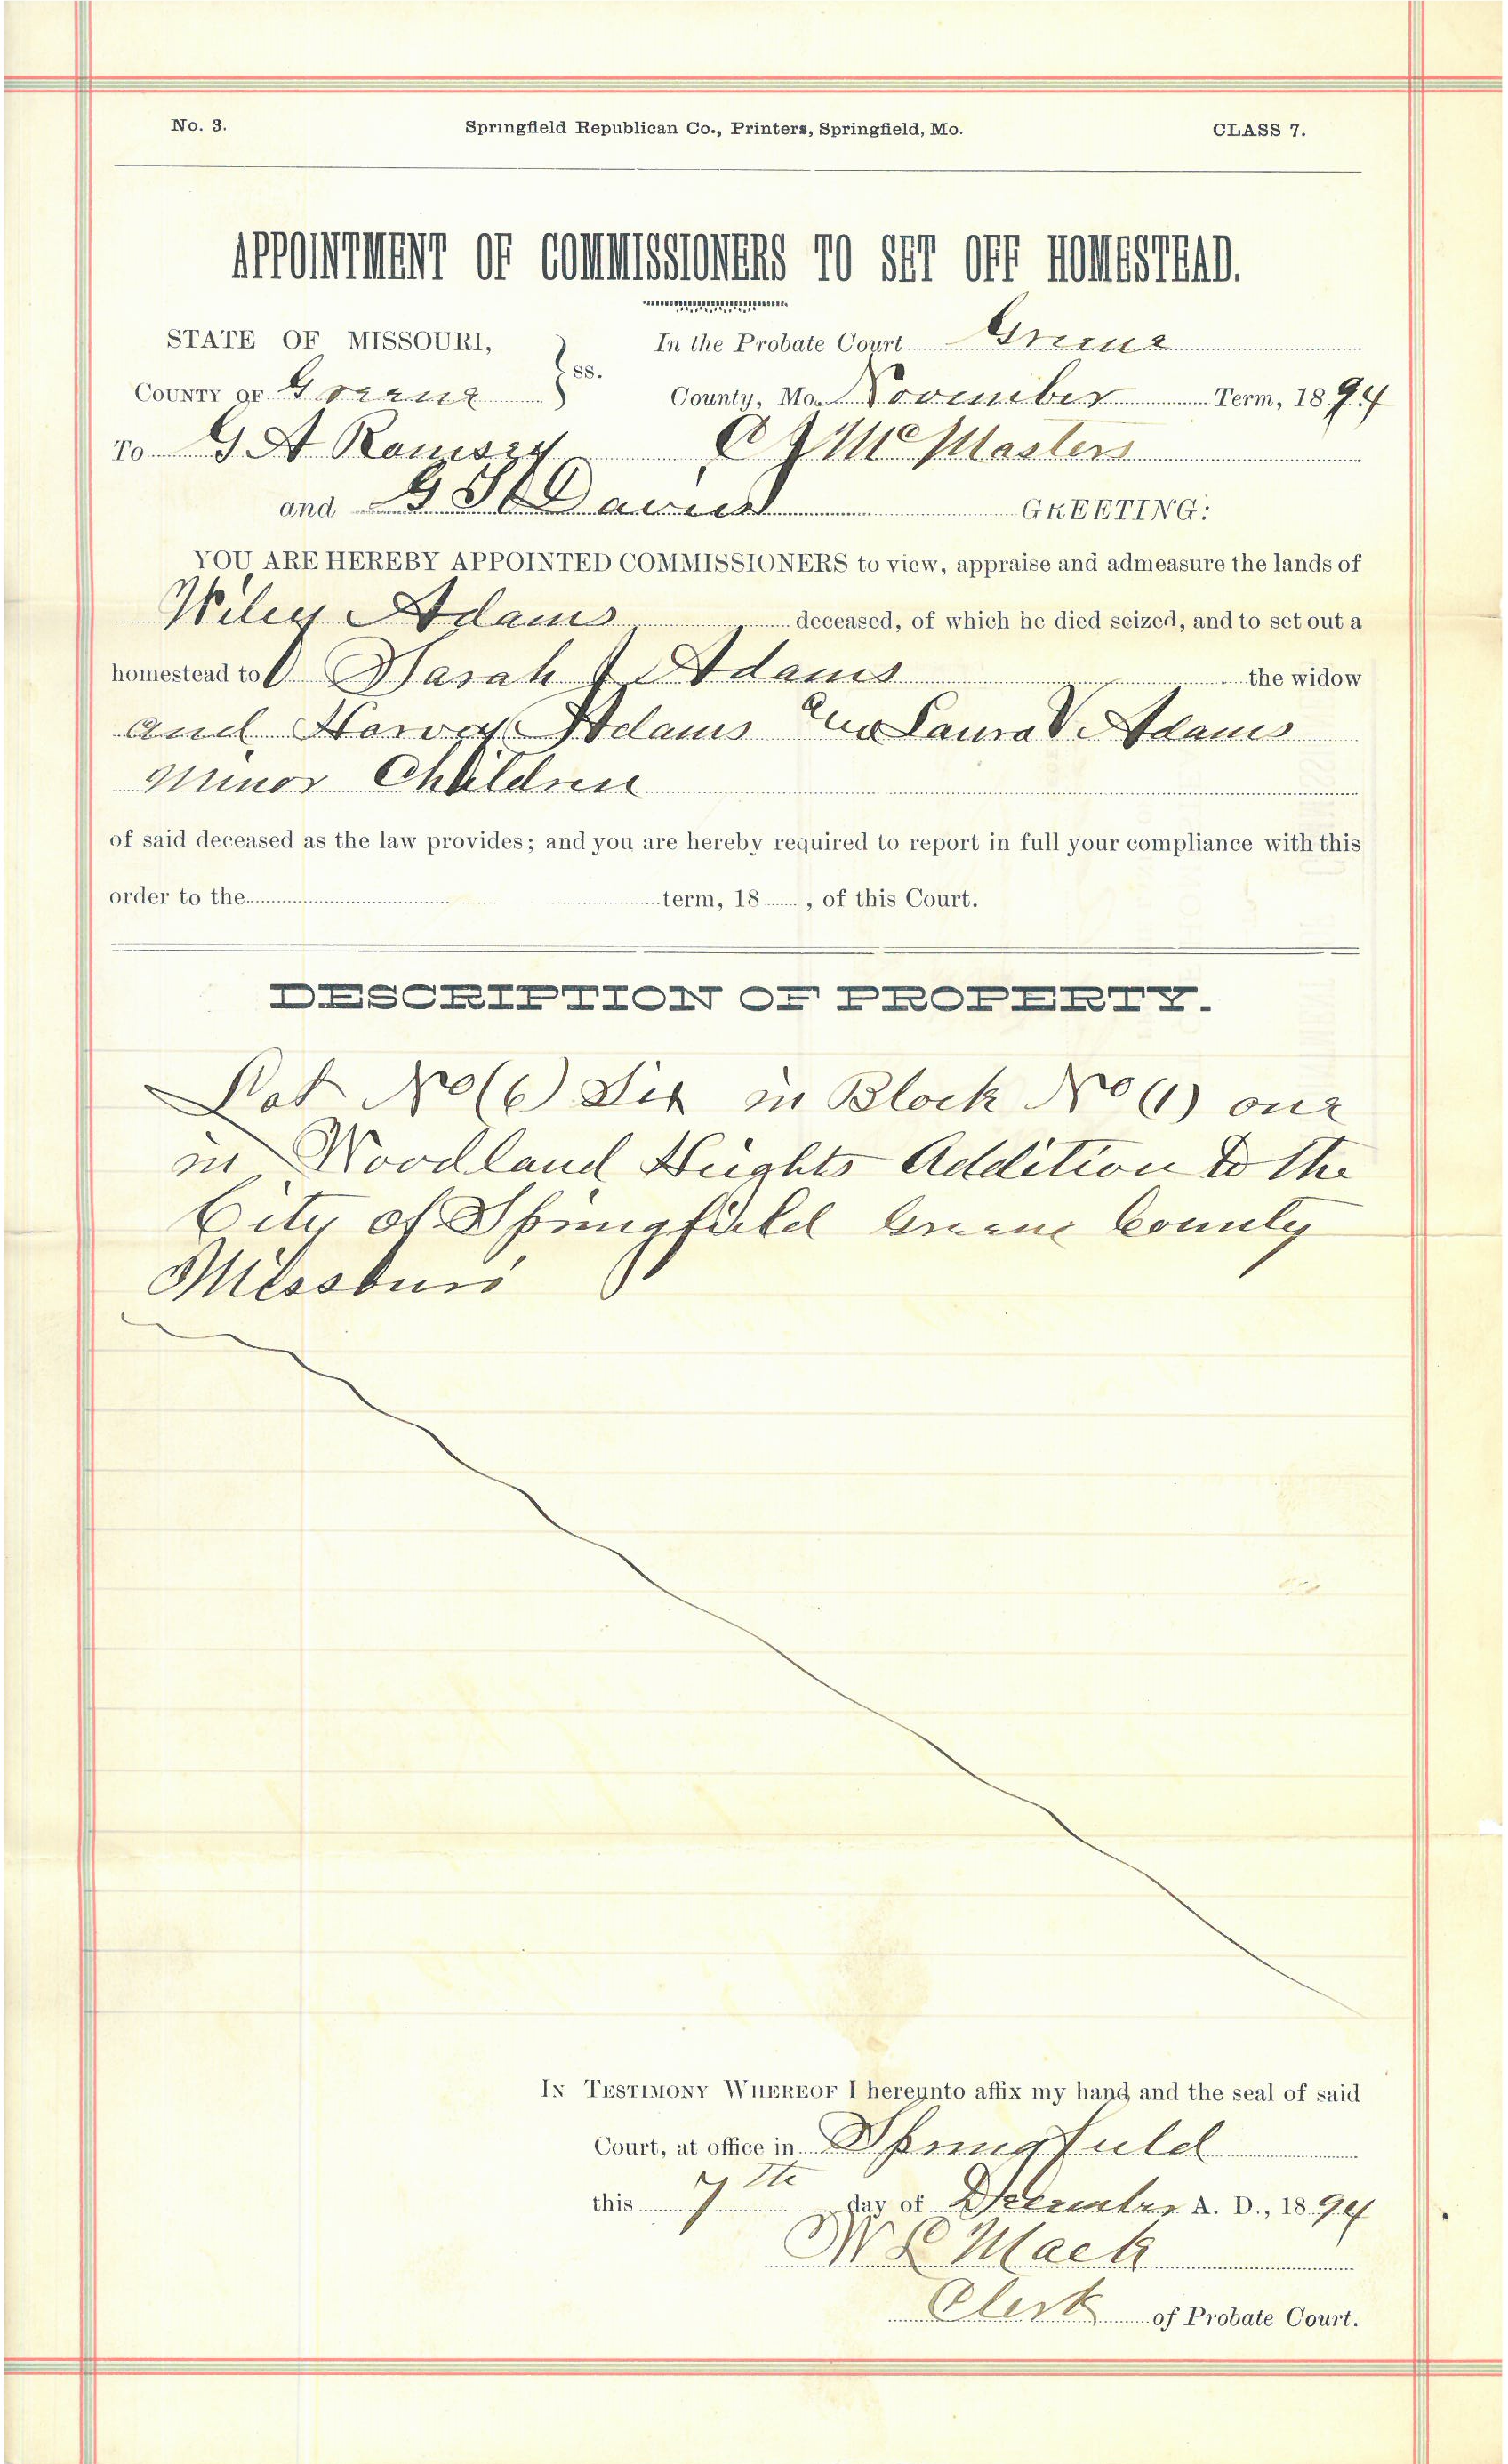 No. 3. Springfield Republican Co., Printers, Springfield, Mo. CLASS 7.
APPOINTMENT OF COMMISSIONERS TO SET OFF HOMESTEAD.
STATE OF MISSOURI, In the Probate Court Greene
ss.
COUNTY OF Greene County, Mo. November Term, 1894
To G A Ramsey McMasters
and G Davis GREETING:
YOU ARE HEREBY APPOINTED COMMISSIONERS to view, appraise and admeasure the lands of
Wiley Adams deceased, of which he died seized, and to set out a
homestead to Sarah J Adams the widow
and Harvey Adams and Laura V Adams
minor Children
of said deceased as the law provides; and you are hereby required to report in full your compliance with this
order to the term, 18 , of this Court.
DESCRIPTION OF PROPERTY.
Lot No (6) Six in Block No (1) one
in Woodland Heights Addition to the
City of Springfield Greene County
Missouri
IN TESTIMONY WHEREOF I hereunto affix my hand and the seal of said
Court, at office in Springfield
this 7th day of December A. D., 1894
W L Mack
Clerk of Probate Court.